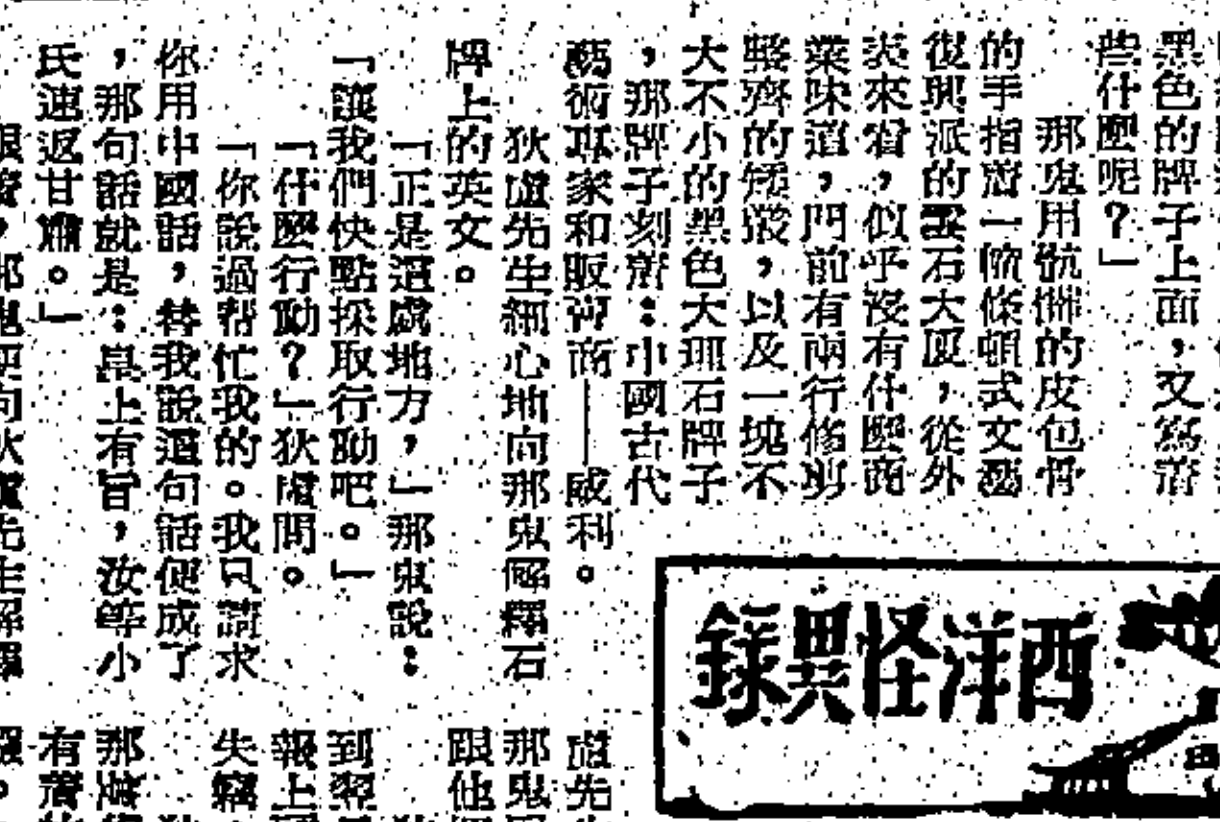 黑色的牌子上面，又寫着
些什麼呢？」
那鬼用骯髒的皮包骨
的手指着一幢條頓式文藝
復興派的雲石大厦，從外
表來看，似乎沒有什麼商
業味道，門前有兩行修剪
整齊的矮叢，以及一塊不
大不小的黑色大理石牌子
，那牌子刻着：中國古代
藝術專家和販賣商——威利。
狄盧先生細心地向那鬼解釋石
牌上的英文。
「正是這處地方，」那鬼說：
「讓我們快點採取行動吧。」
「什麼行動？」狄盧問。
「你說過帮忙我的。我只請求
你用中國話，替我說這句話便成了
，那句話就是：皇上有旨，汝等小
氏速返甘肅。」
西洋怪異錄
盧先
那鬼
跟他
到
報上
失竊
那
有着